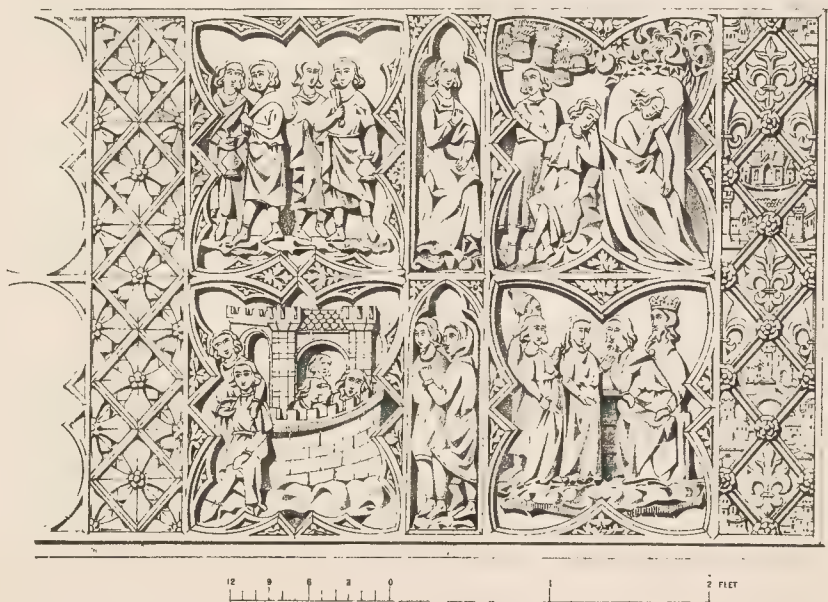 12 9 6 3 0 1 2 FEET